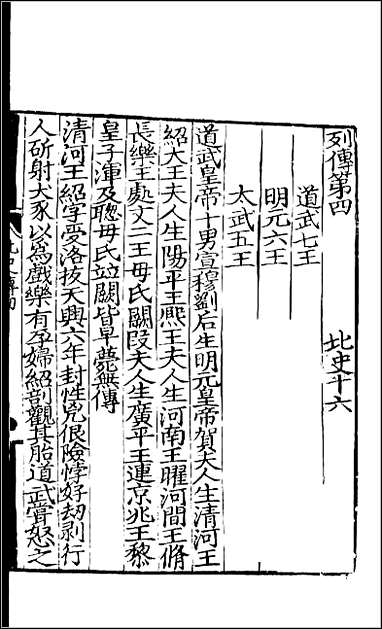 列傳第四 北史十六
道武七王
明元六王
太武五王
道武皇帝十男宣穆劉后生明元皇帝賀夫人生清河王
紹大王夫人生陽平王熙王夫人生河南王曜河間王脩
長樂王處文二王母氏闕段夫人生廣平王連京兆王黎
皇子渾及聦母氏並闕皆早薨無傳
清河王紹字受洛拔天興六年封性兇佷險悖好劫剥行
人斫射犬豕以為戲樂有孕婦紹剖觀其胎道武嘗怒之